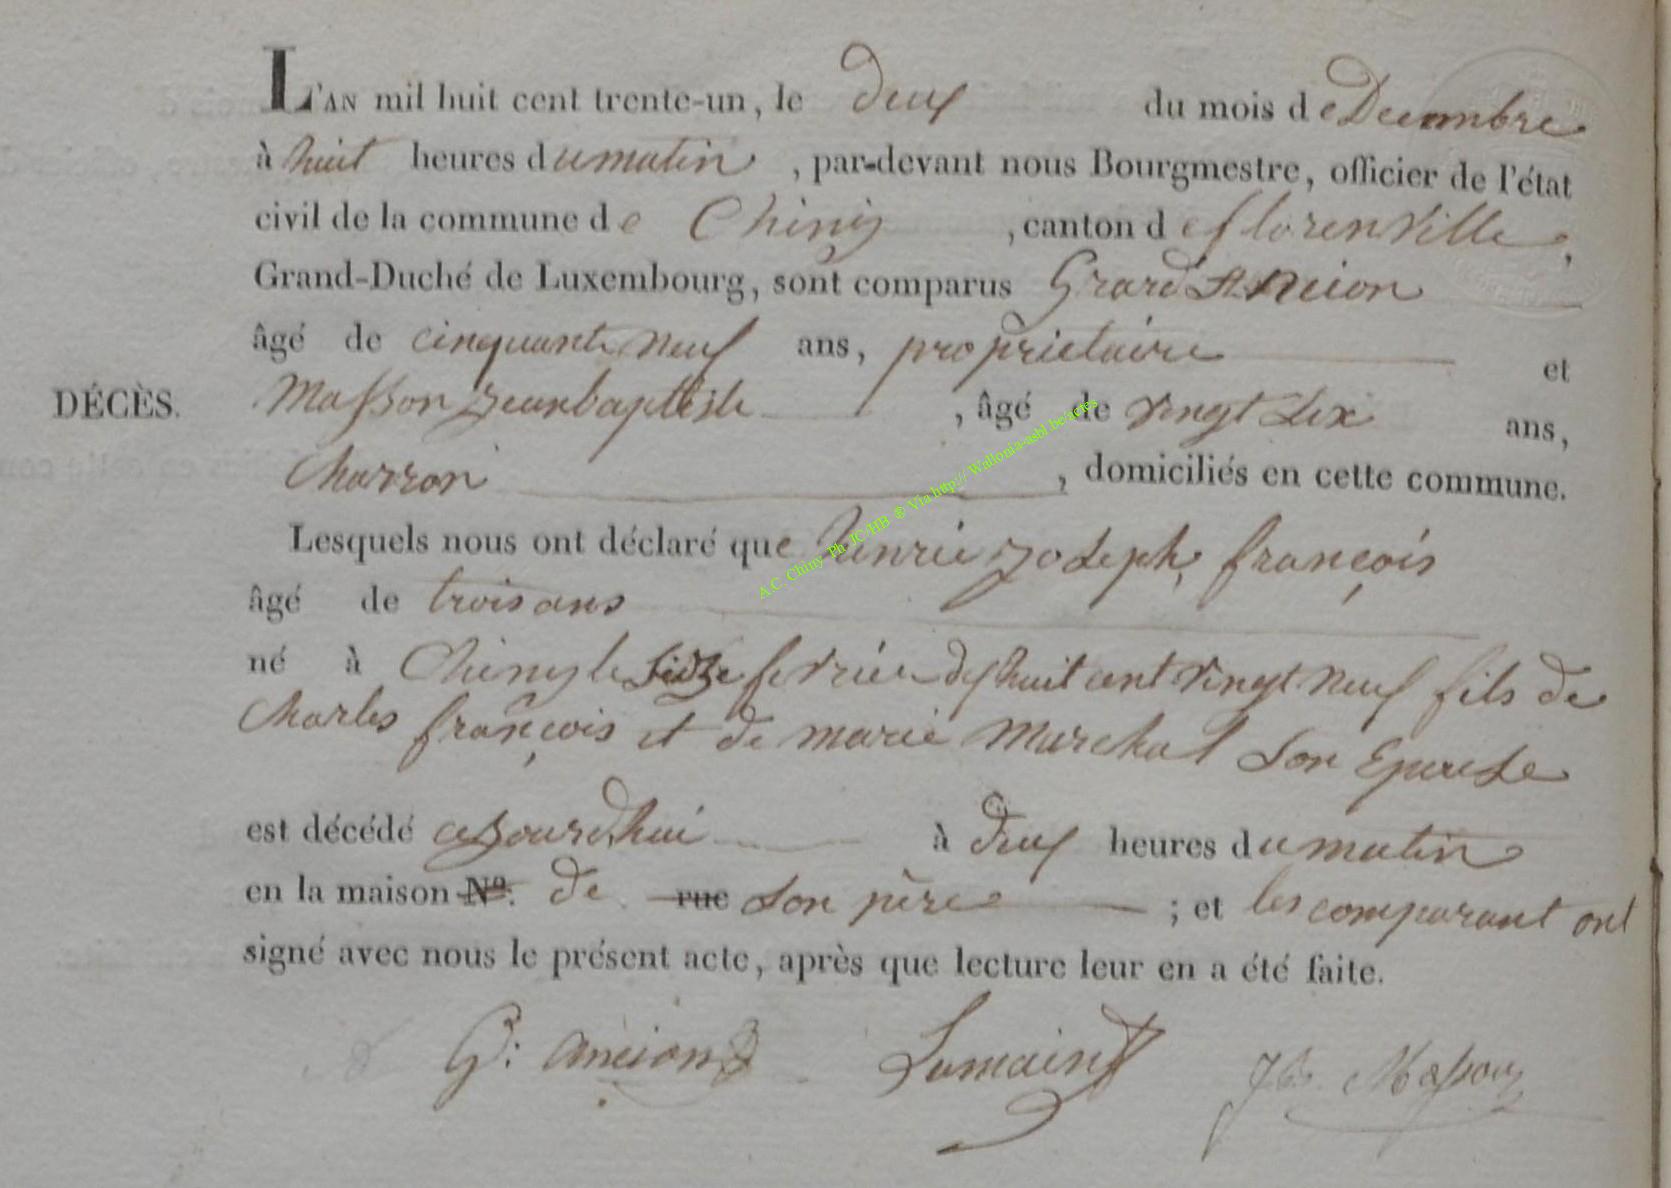 L'AN mil huit cent trente-un, le deux du mois de Decembre
à huit heures du matin, par-devant nous Bourgmestre, officier de l'état
civil de la commune de Chiny, canton de florenville,
Grand-Duché de Luxembourg, sont comparus Grard Ancion
âgé de cinquante neuf ans, proprietaire et
DÉCÈS.
Masson Jeanbaptiste, âgé de vingt six ans,
Charron, domiciliés en cette commune.
Lesquels nous ont déclaré que henrie joseph, françois
âgé de trois ans
né à Chiny le seize fevrier dixhuit cent vingt neuf fils de
Charles françois et de marie Marchal son Epouse
est décédé cejourdhui à deux heures du matin
en la maison Nº. de rue son père ; et les comparant ont
signé avec nous le présent acte, après que lecture leur en a été faite.
G: Ancion Lamain Jb. Masson
A.C. Chiny Ph JC-HB ® Via http:// Wallonia-asbl.be/actes